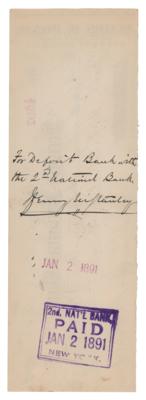 For Deposit Bank with
the 2nd National Bank.
Henry M Stanley
JAN 2 1891
2nd. NAT'L BANK
PAID
JAN 2 1891
NEW YORK.